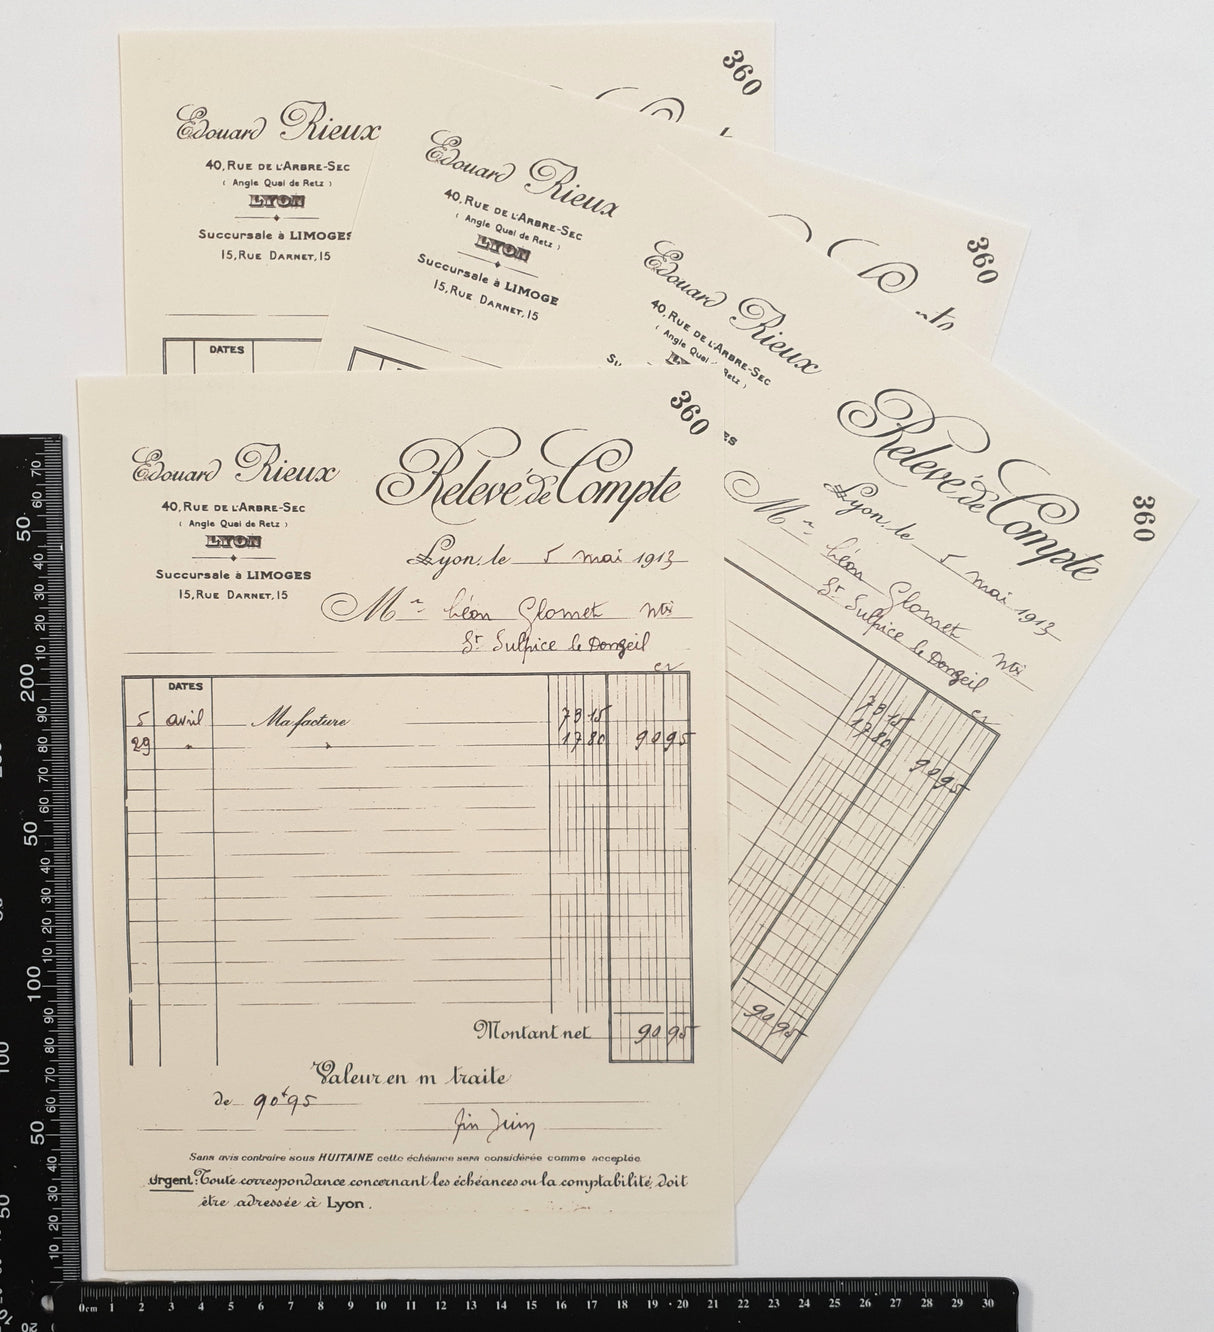 360
Edouard Rieux
40, Rue de l'Arbre-Sec
( Angle Quai de Retz )
LYON
Succursale à LIMOGES
15, Rue Darnet, 15
DATES
360
Edouard Rieux
40, Rue de l'Arbre-Sec
( Angle Quai de Retz )
LYON
Succursale à LIMOGE
15, Rue Darnet, 15
360
Edouard Rieux
40, Rue de l'Arbre-Sec
( Angle Quai
Retz )
Relevé de Compte
Lyon, le 5 mai 1913
Mr Léon Glomet
St Sulpice le Donzeil
73 15
17 80
90 95
90 95
360
Edouard Rieux
Relevé de Compte
40, Rue de l'Arbre-Sec
( Angle Quai de Retz )
LYON
Lyon, le 5 mai 1913
Succursale à LIMOGES
15, Rue Darnet, 15
Mr Léon Glomet
St Sulpice le Donzeil
DATES
5 avril Ma facture 73 15
29 " " 17 80 90 95
Montant net 90 95
Valeur en m traite
de 90f95
fin Juin
Sans avis contraire sous HUITAINE cette échéance sera considérée comme acceptée.
Urgent: Toute correspondance concernant les échéances ou la comptabilité, doit
être adressée à Lyon.
0cm 1 2 3 4 5 6 7 8 9 10 11 12 13 14 15 16 17 18 19 20 21 22 23 24 25 26 27 28 29 30